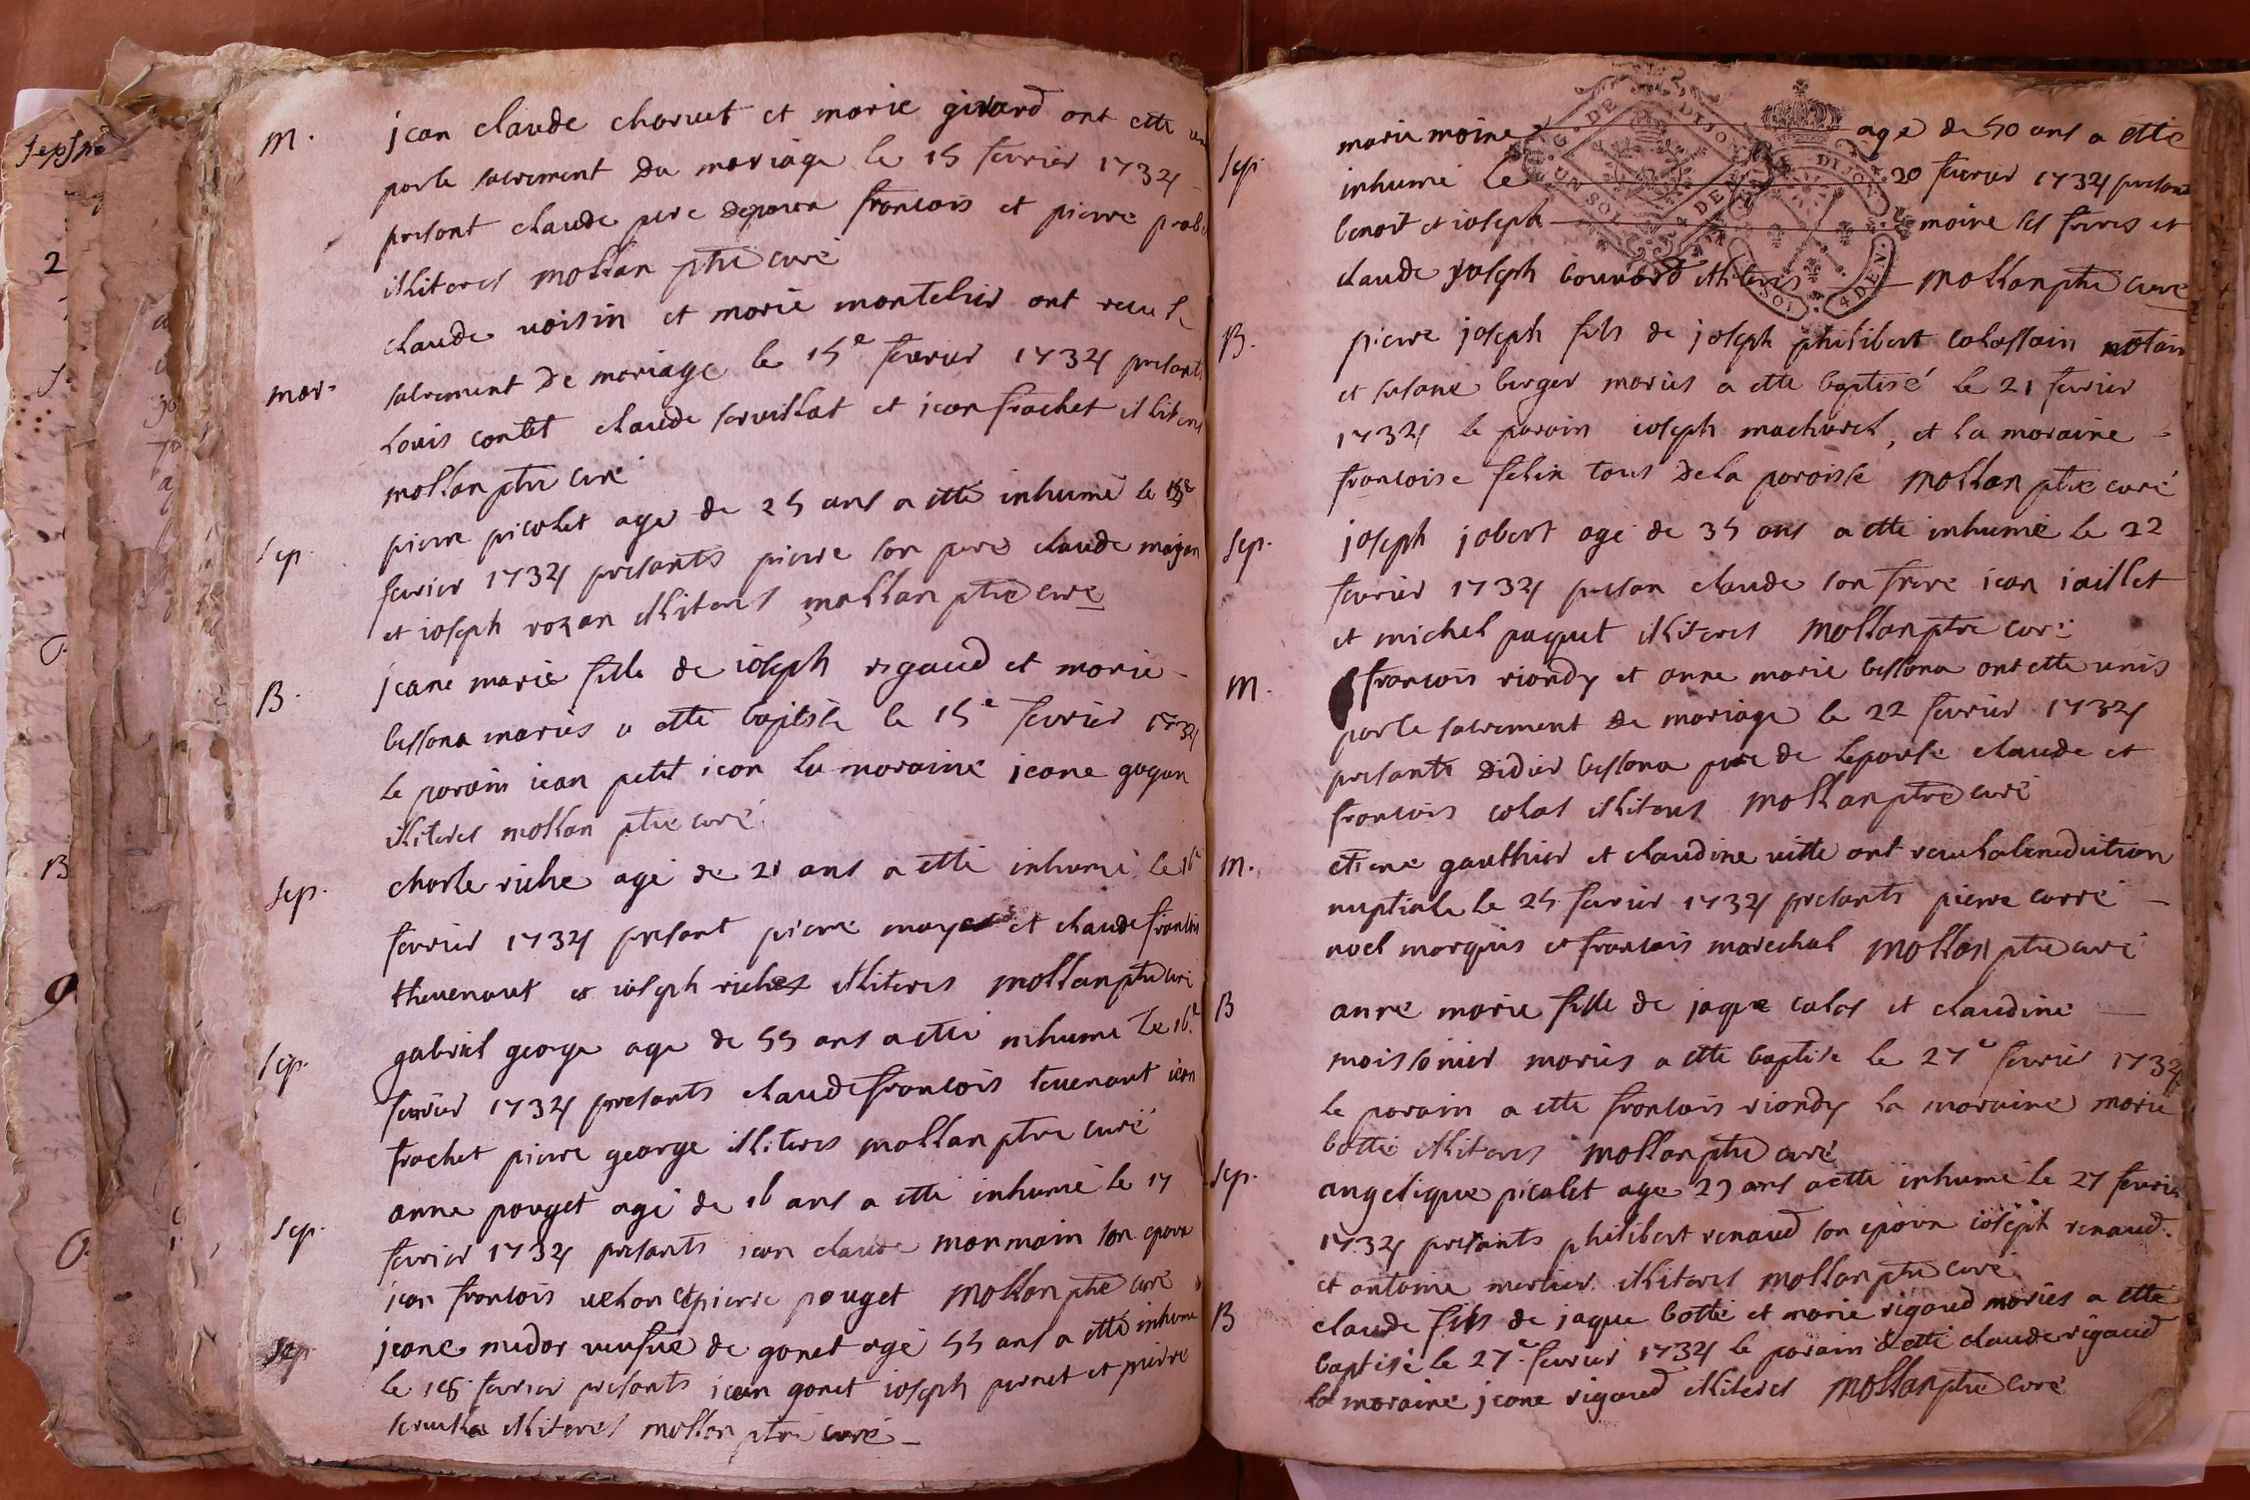 M. jean claude charuet et marie girard ont etté
par le sacrement du mariage le 15 fevrier 1734
presont claude pere depoux francois et pierre
illiteres mollan ptre curé
claude uoisin et marie montelier ont receu le
mar. sacrement de mariage le 15e fevrier 1734 presants
louis contet claude seruillat et jean frachet illiteres
mollan ptre curé
pierre picolet age de 25 ans a etté inhumé le
sep. fevrier 1734 presants pierre son pere claude
et ioseph rozan illiteres mollan ptre cure
B. jeane marie fille de ioseph rigaud et marie
bessona mariés a etté baptisée le 15e fevrier 1734
le parain jean petit jean la maraine jeane gagan
illiteres mollan ptre curé
sep. charle riche agé de 21 ans a etté inhumé le 16
fevrier 1734 presant pierre et claude francois
theuenaut et ioseph riche illiteres mollan ptre curé
sep. gabriel george age de 55 ans a etté inhumé le 16e
fevrier 1734 presants claude francois teuenaut jean
frachet pierre george illiteres mollan ptre curé
sep. anne pouget agé de 16 ans a etté inhumé le 17
fevrier 1734 presants jean claude monmain son epoux
jean francois uelon et pierre pouget mollan ptre curé
sep. jeane midor ueufue de gonet agé 55 ans a etté inhumé
le 18 fevrier presants jean gonet ioseph pernet et pierre
illiteres mollan ptre curé
marie moine age de 50 ans a etté
sep. inhumé le 20 fevrier 1734 presant
benoit et ioseph moine ses freres et
claude joseph bouuard illiteres mollan ptre curé
G. DE DIJON
UN SOL 4 DEN.
DIJON
SOL 4 DEN.
B. pierre joseph fils de joseph philibert colassain notaire
et susane berger mariés a etté baptisé le 21 fevrier
1734 le parain ioseph machurel, et la maraine
francoise felin tous de la paroisse mollan ptre curé
sep. joseph jobert agé de 35 ans a etté inhumé le 22
fevrier 1734 presan claude son frere jean iaillet
et michel paquet illiteres mollan ptre curé
M. francois riondy et anne marie bessona ont etté unis
par le sacrement de mariage le 22 fevrier 1734
presants didier bessona pere de lepouse claude et
francois colas illiteres mollan ptre curé
M. etiene gauthier et claudine uitte ont receu la benediction
nuptiale le 25 fevrier 1734 presants pierre carré
noel marquis et francois marechal mollan ptre curé
B anne marie fille de jaque calas et claudine
moissonier mariés a etté baptise le 27e fevrier 1734
le parain a etté francois riondy la maraine marie
botté illiteres mollan ptre curé
sep. angelique picolet age 23 ans a etté inhumé le 27 fevrier
1734 presants philibert renaud son epoux ioseph renaud
et antoine merlier illiteres mollan ptre curé
B claude fils de jaque botté et marie rigaud mariés a etté
baptisé le 27e fevrier 1734 le parain a etté claude rigaud
la maraine jeane rigaud illiteres mollan ptre curé